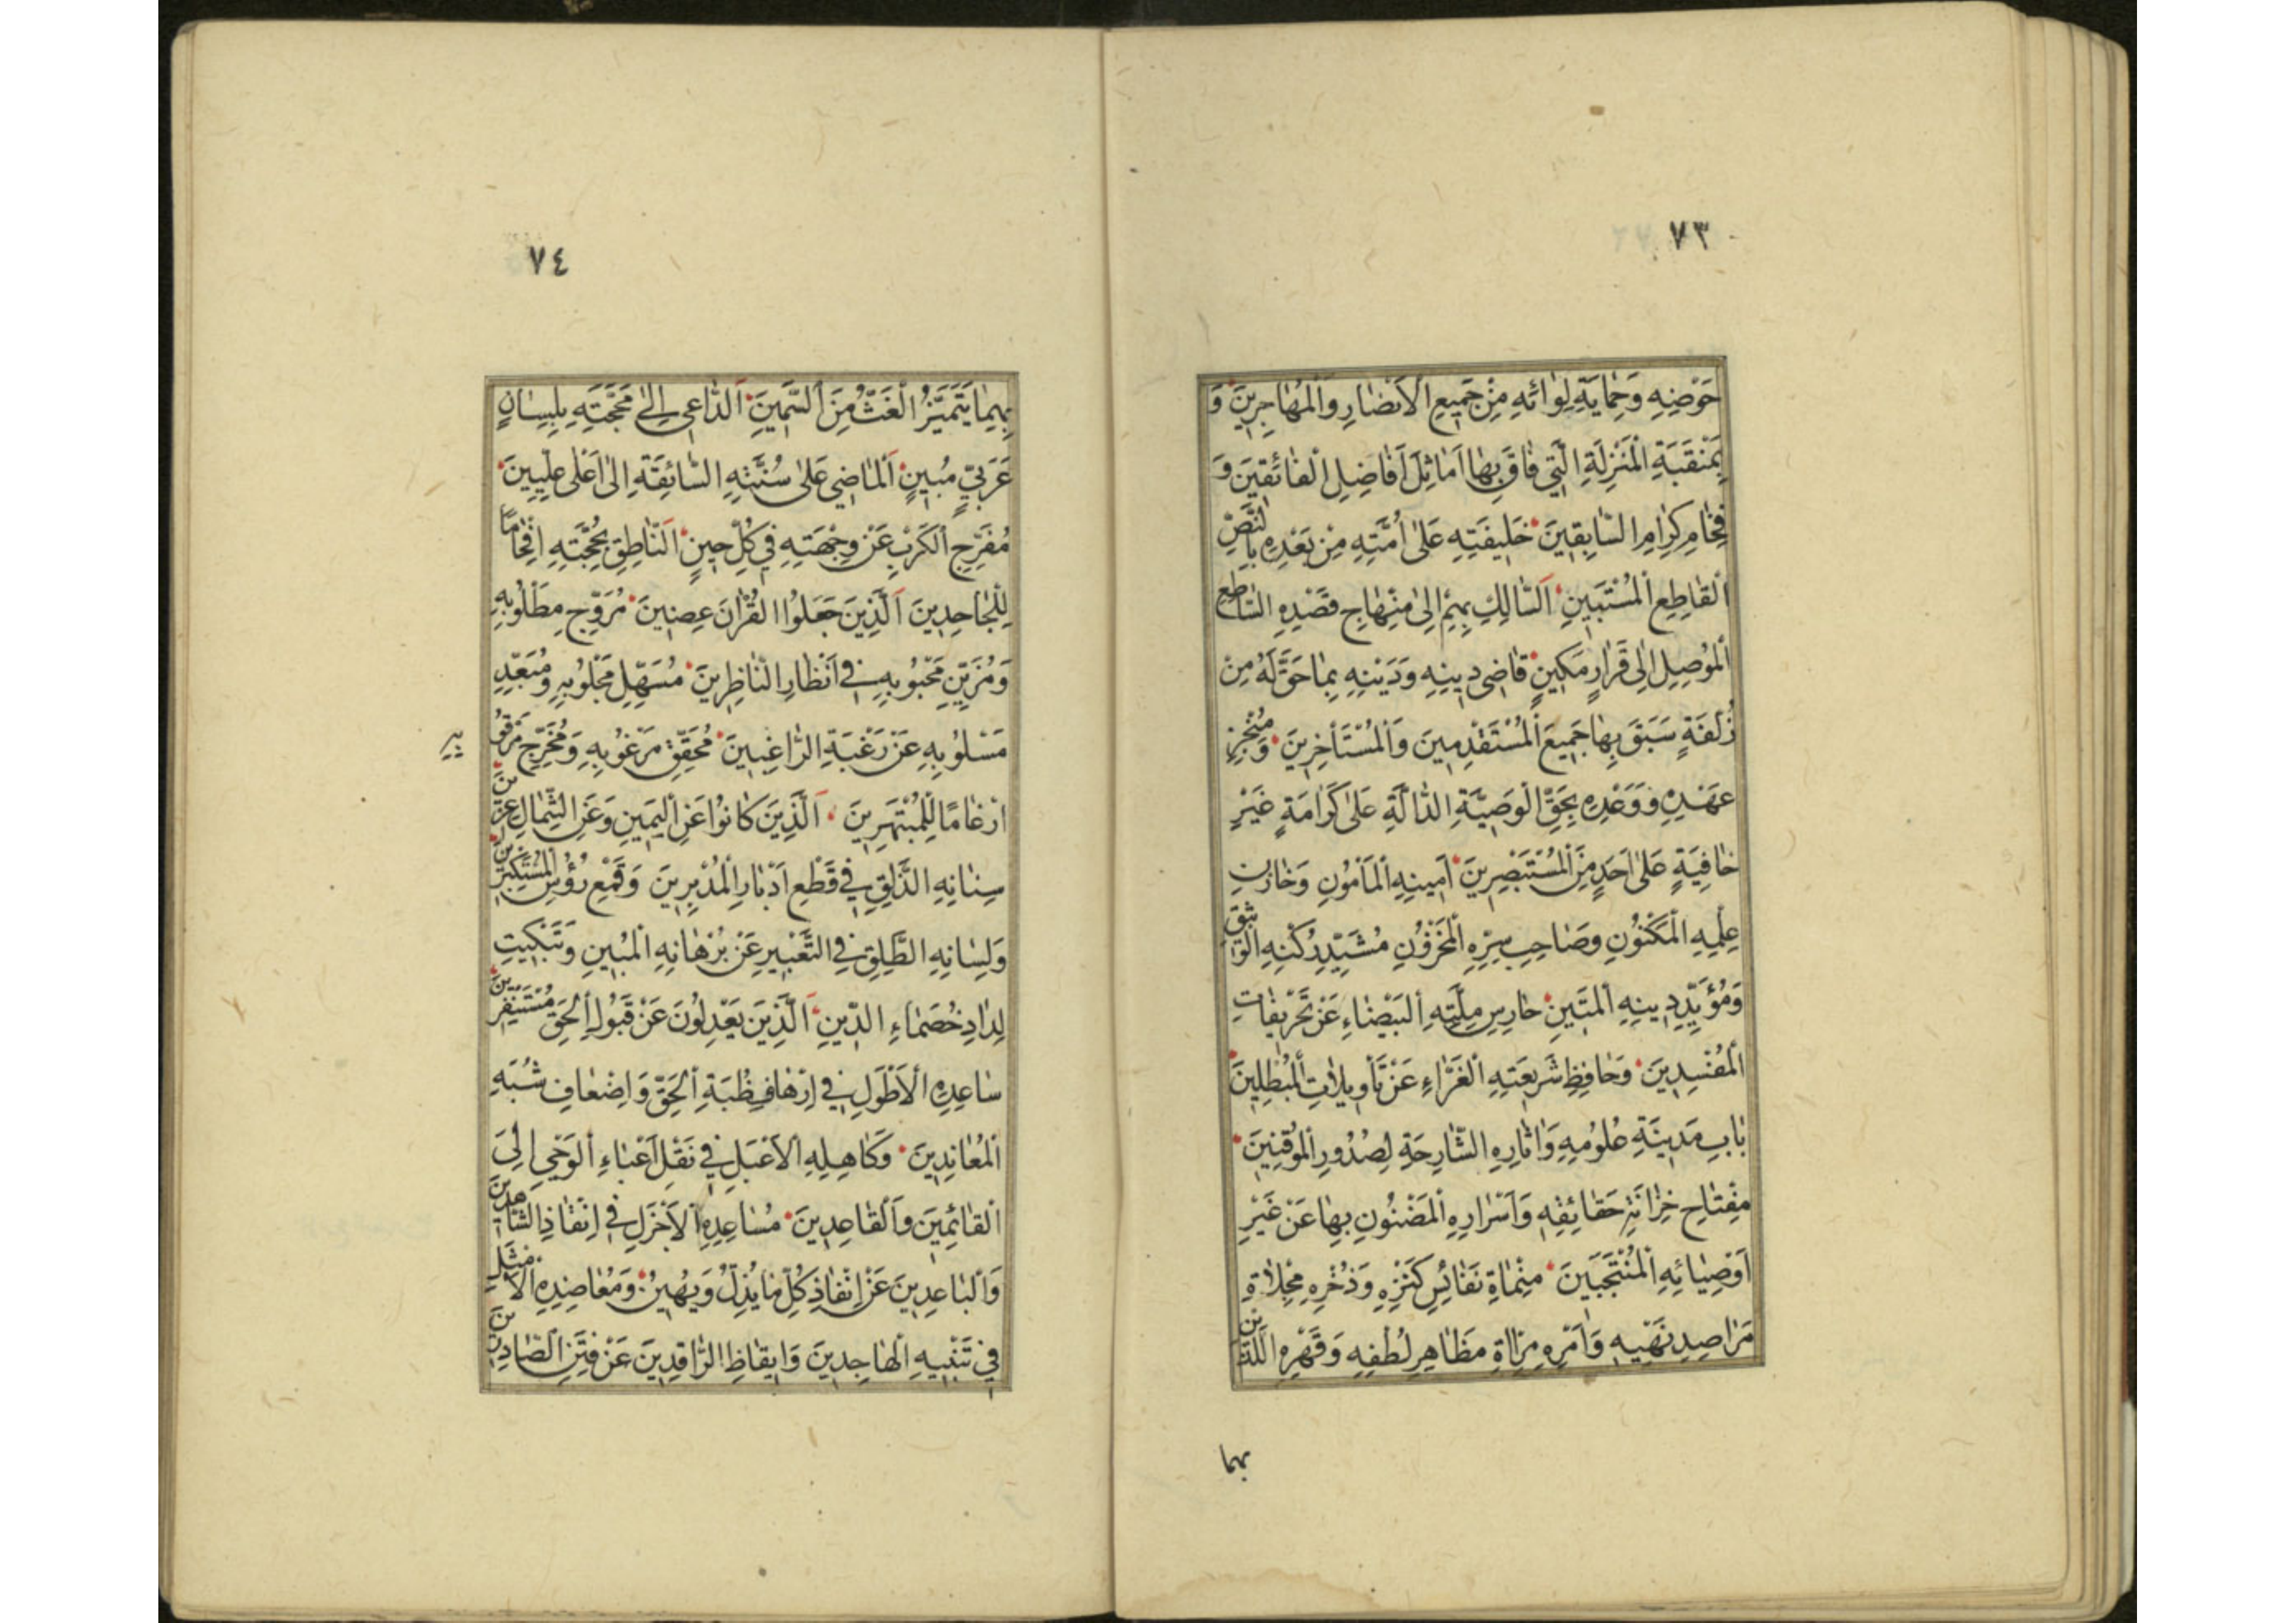 ٧٣
حَوْضِهِ وَحِمَايَةِ لِوَائِهِ مِنْ جَمِيعِ الْأَنْصَارِ وَالْمُهَاجِرِينَ وَ
بِمَنْقَبَةِ الْمَنْزِلَةِ الَّتِي فَاقَ بِهَا أَمَاثِلَ أَفَاضِلِ الْفَائِقِينَ وَ
فِخَامِ كِرَامِ السَّابِقِينَ خَلِيفَتِهِ عَلَى أُمَّتِهِ مِنْ بَعْدِهِ بِالنَّصِّ
الْقَاطِعِ الْمُسْتَبِينِ اَلسَّالِكِ بِهِمْ إِلَى مِنْهَاجِ قَصْدِهِ السَّاطِعِ
الْمُوصِلِ إِلَى قَرَارٍ مَكِينٍ قَاضِي دِينِهِ وَدَيْنِهِ بِمَا حَقَّ لَهُ مِنْ
زُلْفَةٍ سَبَقَ بِهَا جَمِيعَ الْمُسْتَقْدِمِينَ وَالْمُسْتَأْخِرِينَ وَمُنْجِزِ
عَهْدِهِ وَوَعْدِهِ بِحَقِّ الْوَصِيَّةِ الدَّالَّةِ عَلَى كَرَامَةٍ غَيْرِ
خَافِيَةٍ عَلَى أَحَدٍ مِنَ الْمُسْتَبْصِرِينَ أَمِينِهِ الْمَأْمُونِ وَخَازِنِ
عِلْمِهِ الْمَكْنُونِ وَصَاحِبِ سِرِّهِ الْمَخْزُونِ مُشَيِّدِ رُكْنِهِ الْوَاثِقِ
وَمُؤَيِّدِ دِينِهِ الْمَتِينِ حَارِسِ مِلَّتِهِ الْبَيْضَاءِ عَنْ تَحْرِيفَاتِ
الْمُفْسِدِينَ وَحَافِظِ شَرِيعَتِهِ الْغَرَّاءِ عَنْ تَأْوِيلَاتِ الْمُبْطِلِينَ
بَابِ مَدِينَةِ عُلُومِهِ وَآثَارِهِ الشَّارِحَةِ لِصُدُورِ الْمُوقِنِينَ
مِفْتَاحِ خِزَانَةِ حَقَائِقِهِ وَأَسْرَارِهِ الْمَضْنُونِ بِهَا عَنْ غَيْرِ
أَوْصِيَائِهِ الْمُنْتَجَبِينَ مِنْمَاةِ نَفَائِسِ كَنْزِهِ وَذُخْرِهِ مِجْلَاةِ
مَرَاصِدِ نَهْيِهِ وَأَمْرِهِ مِرْآةِ مَظَاهِرِ لُطْفِهِ وَقَهْرِهِ اللَّذَيْنِ
بهما
٧٤
بِهِمَا يَتَمَيَّزُ الْغَثُّ مِنَ السَّمِينِ اَلدَّاعِي إِلَى مَحَجَّتِهِ بِلِسَانٍ
عَرَبِيٍّ مُبِينٍ اَلْمَاضِي عَلَى سُنَّتِهِ السَّائِقَةِ إِلَى أَعْلَى عِلِّيِّينَ
مُفَرِّجِ الْكَرْبِ عَنْ وِجْهَتِهِ فِي كُلِّ حِينٍ اَلنَّاطِقِ بِحُجَّتِهِ إِفْحَامًا
لِلْجَاحِدِينَ اَلَّذِينَ جَعَلُوا الْقُرْآنَ عِضِينَ مُرَوِّجِ مَطْلُوبِهِ
وَمُزَيِّنِ مَحْبُوبِهِ فِي أَنْظَارِ النَّاظِرِينَ مُسَهِّلِ مَجْلُوبِهِ وَمُبَعِّدِ
مَسْلُوبِهِ عَنْ رَغْبَةِ الرَّاغِبِينَ مُحَقِّقِ مَرْغُوبِهِ وَمُخَرِّجِ مَرْقُو
بِهِ
إِرْغَامًا لِلْمُبْتَهِرِينَ اَلَّذِينَ كَانُوا عَنِ الْيَمِينِ وَعَنِ الشِّمَالِ عِزِينَ
سِنَانِهِ الذَّلِقِ فِي قَطْعِ أَدْبَارِ الْمُدْبِرِينَ وَقَمْعِ رُؤُسِ الْمُسْتَكْبِرِينَ
وَلِسَانِهِ الطَّلِقِ فِي التَّعْبِيرِ عَنْ بُرْهَانِهِ الْمُبِينِ وَتَبْكِيتِ
لِدَادِ خُصَمَاءِ الدِّينِ اَلَّذِينَ يَعْدِلُونَ عَنْ قَبُولِ الْحَقِّ مُسْتَنْفِرِينَ
سَاعِدِهِ الْأَطْوَلِ فِي إِرْهَافِ ظُبَةِ الْحَقِّ وَإِضْعَافِ شُبَهِ
الْمُعَانِدِينَ وَكَاهِلِهِ الْأَعْبَلِ فِي نَقْلِ أَعْبَاءِ الْوَحْيِ إِلَى
الْقَائِمِينَ وَالْقَاعِدِينَ مُسَاعِدِهِ الْأَجْزَلِ فِي إِنْقَاذِ الشَّاهِدِينَ
وَالْبَاعِدِينَ عَنْ إِنْفَاذِ كُلِّ مَا يُذِلُّ وَيُهِينُ وَمُعَاضِدِهِ الْأَمْثَلِ
فِي تَنْبِيهِ الْهَاجِدِينَ وَإِيقَاظِ الرَّاقِدِينَ عَنْ فِتَنِ الصَّادِّينَ